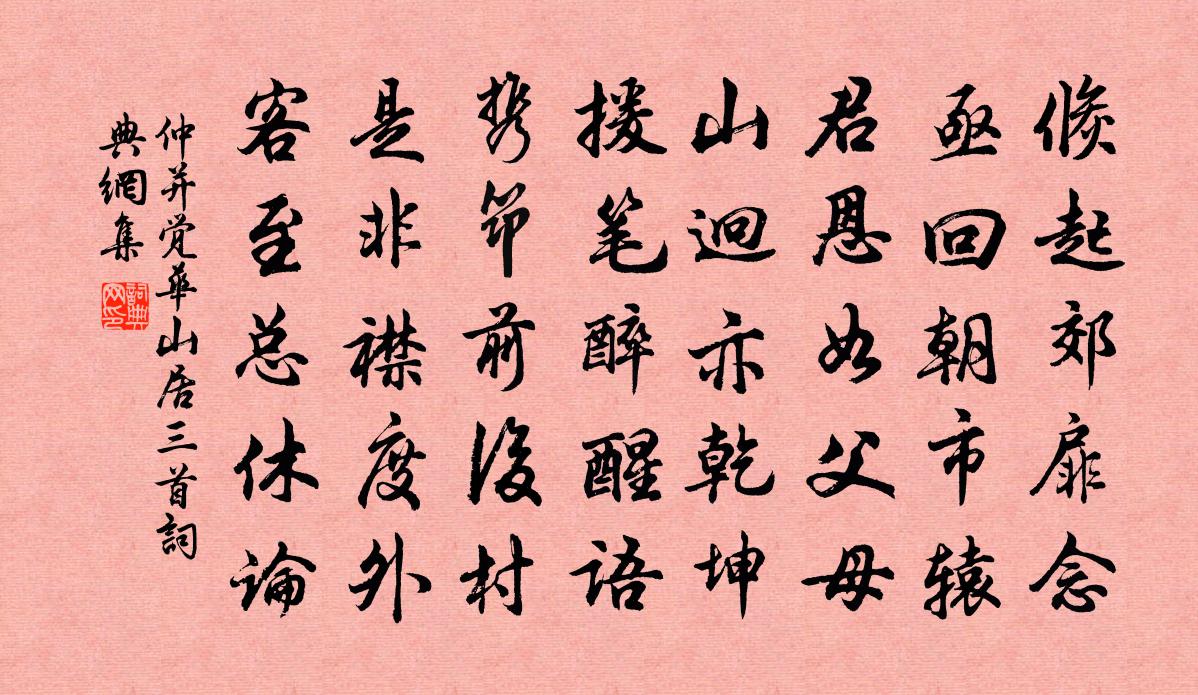 倏起郊扉念
亟回朝市辕
君恩如父母
山迥亦乾坤
援笔醉醒语
携筇前後村
是非襟度外
客至总休论
仲并觉華山居三首詞
典網集
詞典
网印